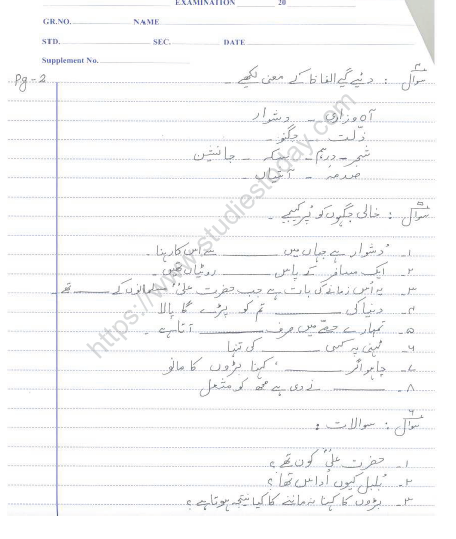 EXAMINATION 20
GR.NO. NAME
STD. SEC. DATE
Supplement No.
Pg-2
سوال ۴ : دئیے گیے الفاظ کے معنی لکھیے ۔
آہ و زاری ۔ دشوار
ذلت ۔ جگنو ۔
شجر ۔ درہم ۔ سکہ ۔ جانشین
صدمہ ۔ آشیاں ۔
سوال ۵ : خالی جگہوں کو پُر کیجیے ۔
۱۔ دشوار ہے جہاں میں ______ بے آس کا رہنا ۔
۲۔ ایک مسافر کے پاس ______ روٹیاں تھیں ۔
۳۔ یہ اُس زمانے کی بات ہے جب حضرت علیؓ مسلمانوں کے ______ تھے ۔
۴۔ دنیا کی ______ تم کو پڑے گا پالا
۵۔ تمہارے حصّے میں صرف ______ آتا ہے ۔
۶۔ ٹہنی پہ کسی ______ کی تنہا
۷۔ چاہو اگر ______، کہنا بڑوں کا مانو
۸۔ ______ نے دی ہے مجھ کو مشعل
سوال ۶ : سوالات :
۱۔ حضرت علیؓ کون تھے ؟
۲۔ بُلبل کیوں اُداس تھا ؟
۳۔ بڑوں کا کہنا نہ ماننے کا کیا نتیجہ ہوتا ہے ؟
https://www.studiestoday.com